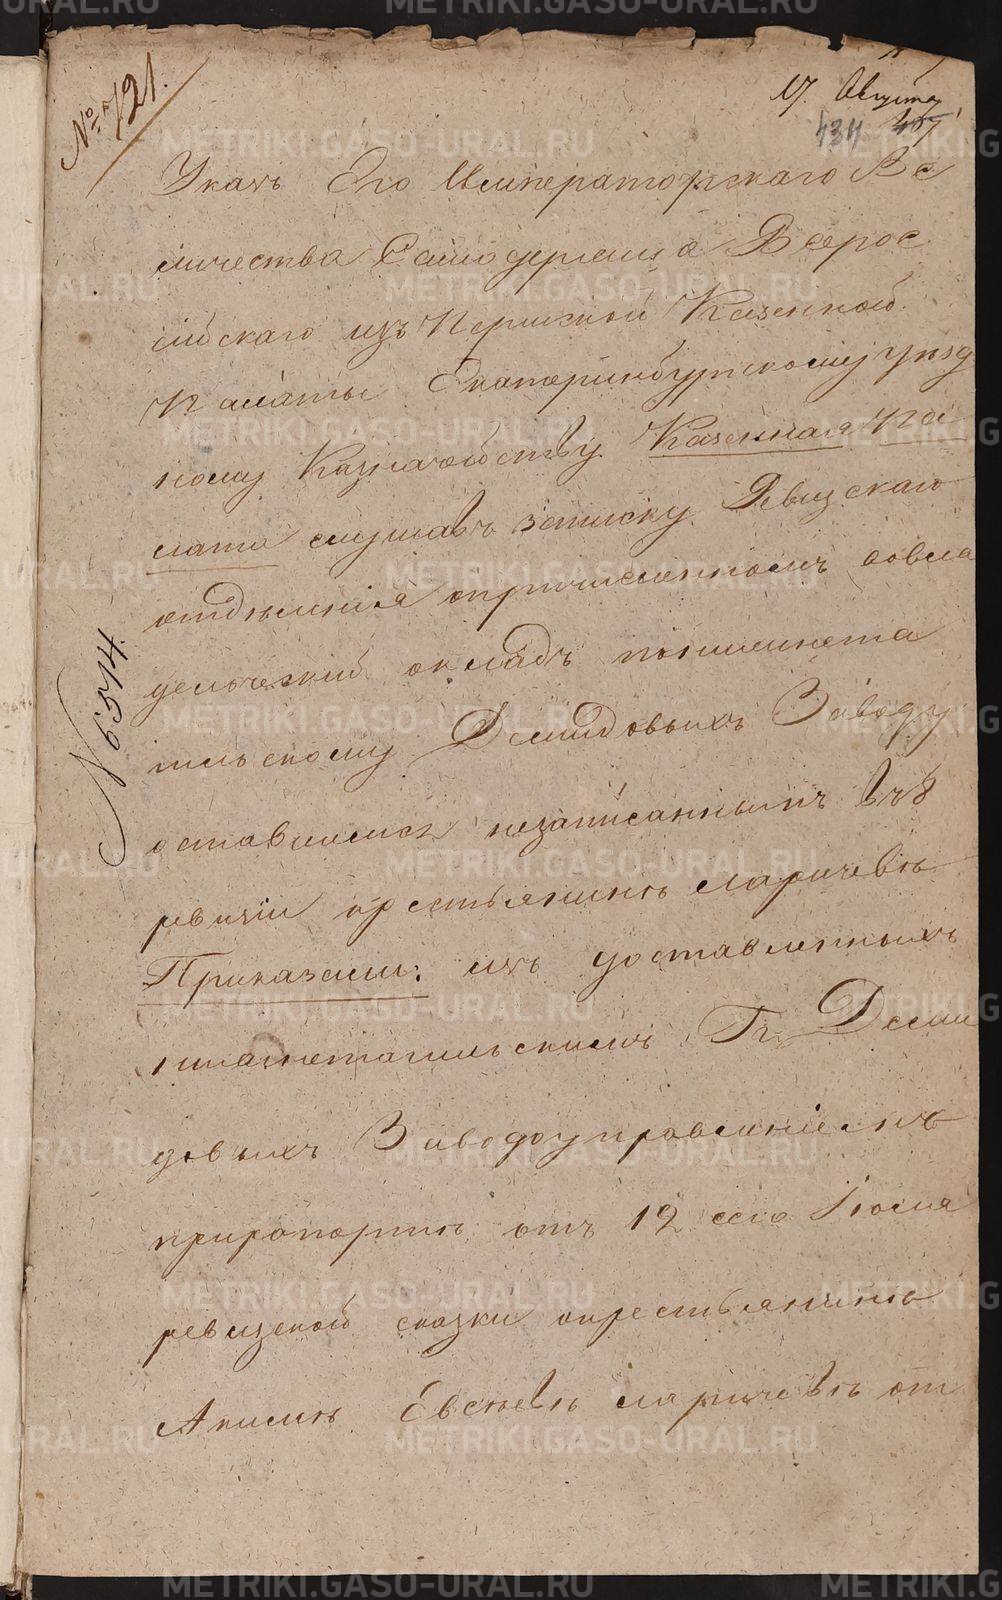 № 721.
17 Августа
434 407
Указъ Его Императорскаго Ве
личества Самодержца Всерос
сійскаго изъ Пермской Казенной
Палаты Екатеринбургскому уезд
ному Казначейству. Казенная Па
лата слушавъ записку Ревизскаго
отделенія опричисленномъ вовла
дельческій окладъ понижнета
гильскому Демидовыхъ Заводу
оставшемся незаписаннымъ въ 8
ревизіи крестьянине Ларичеве
Приказали: изъ доставленныхъ
нижнетагильскимъ Гг. Деми
довыхъ Заводоуправленіемъ
прирапорте отъ 12 сего Іюля
ревизской сказки окрестьянине
Акиме Евсеевѣ Ларичевѣ от
№ 6574.
METRIKI.GASO-URAL.RU